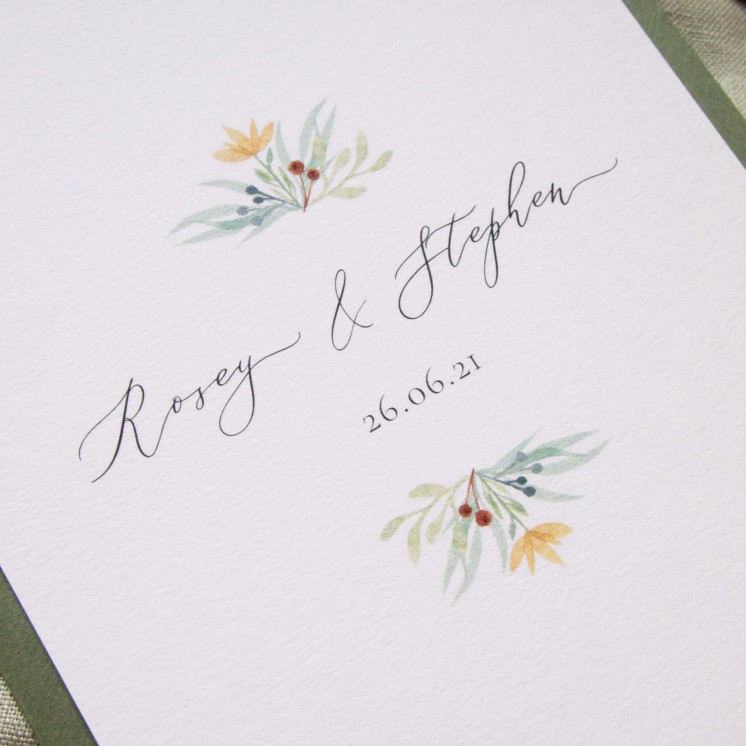 Rosey & Stephen
26.06.21